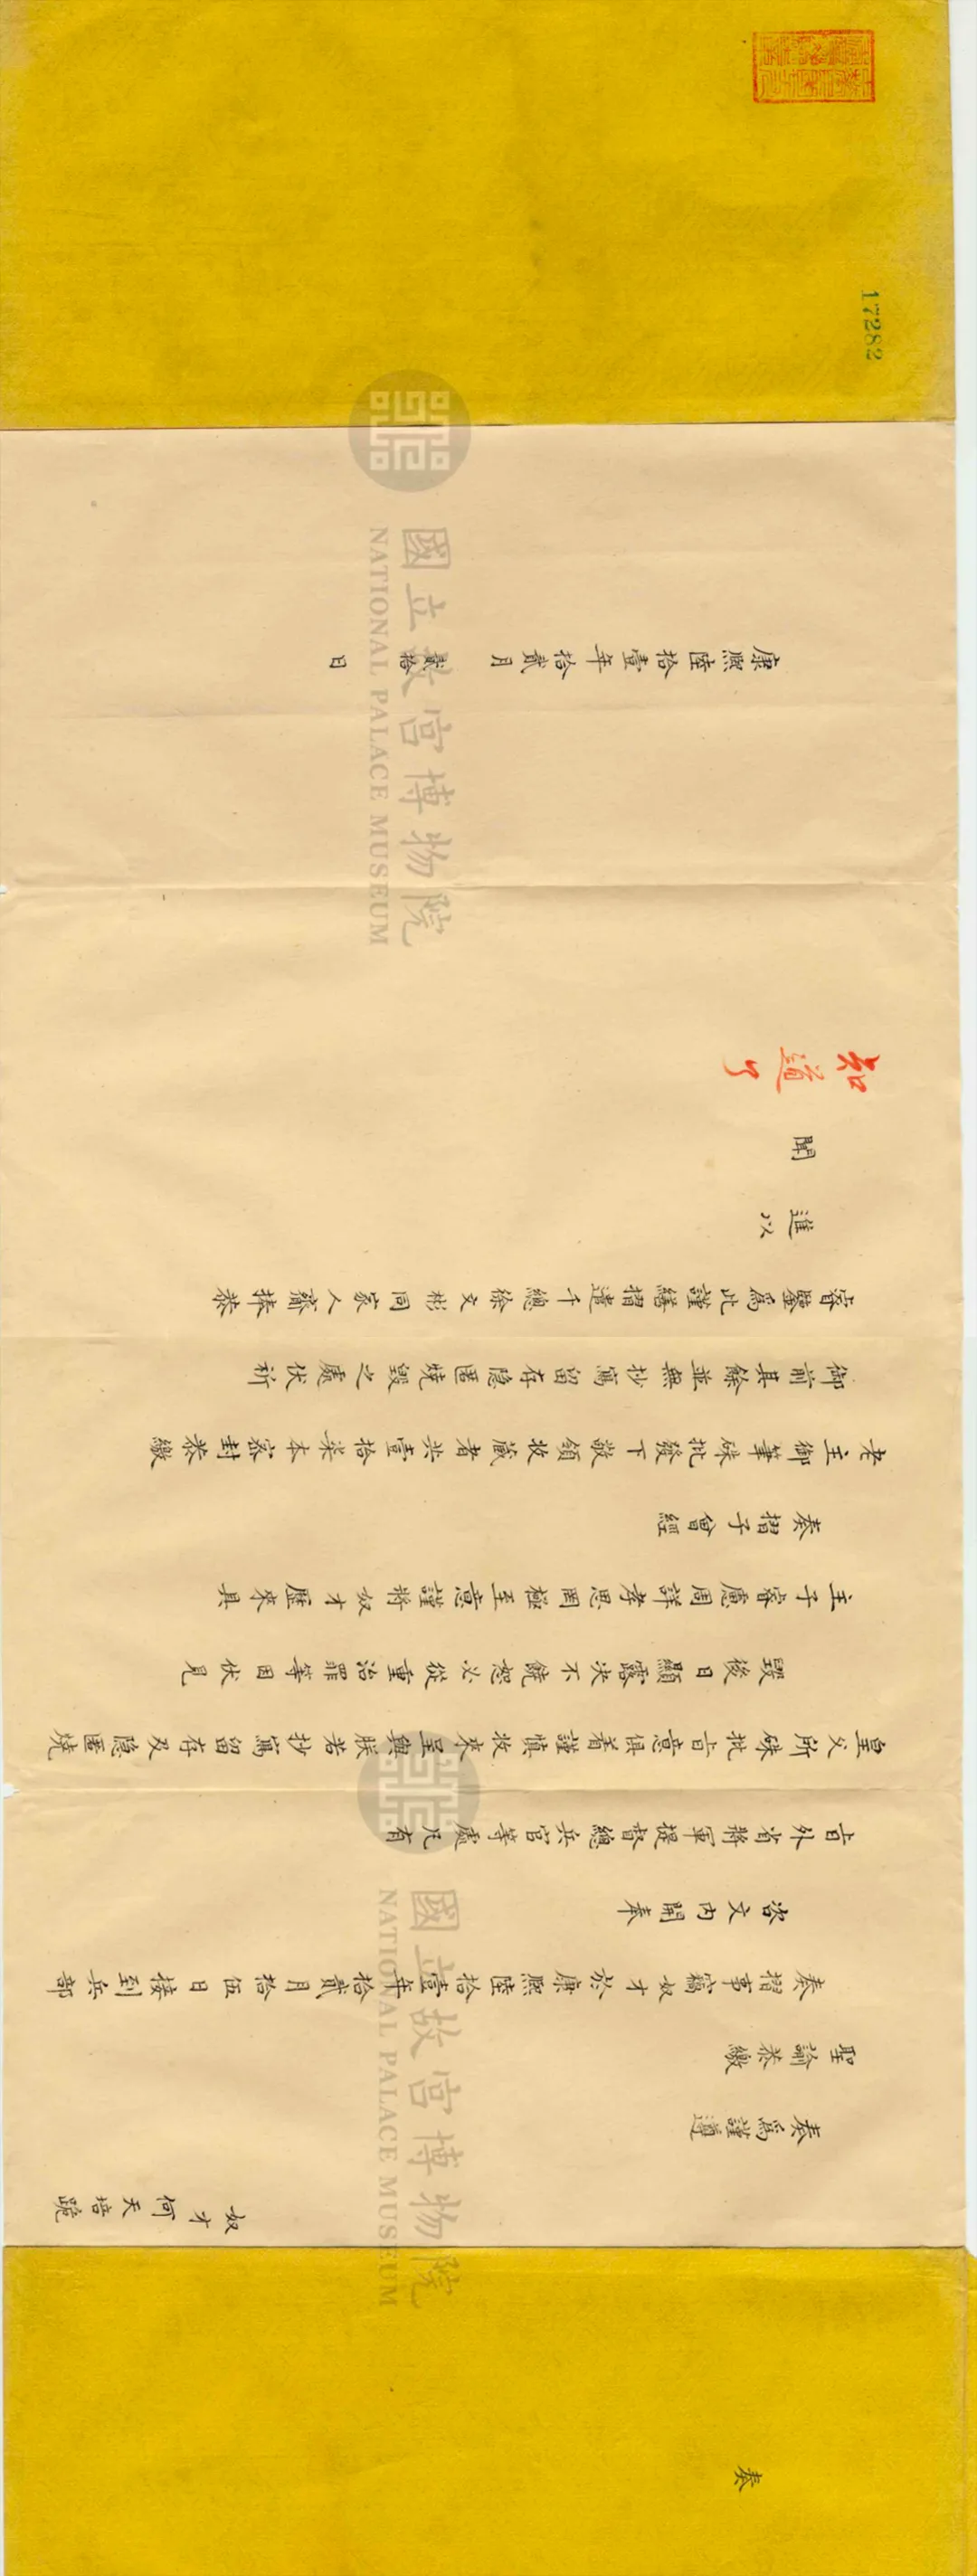 奏
奴才何天培跪
奏為謹遵
聖諭恭繳
奏摺事竊奴才於康熙陸拾壹年拾貳月拾伍日接到兵部
咨文內開奉
旨外省將軍提督總兵官等處凡有
皇父所硃批旨意俱着謹慎收來呈與朕若抄寫留存及隱匿燒
毀後日顯露决不饒恕必從重治罪等因伏見
主子睿慮周詳孝思罔極至意謹將奴才歷來具
奏摺子曾經
老主御筆硃批發下敬領收藏者共壹拾柒本密封恭繳
御前其餘並無抄寫留存隱匿燒毀之處伏祈
睿鑒為此謹繕摺遣千總徐文彬同家人齎捧恭
進以
聞
知道了
康熙陸拾壹年拾貳月貳拾日
17282
國立故宮博物院
NATIONAL PALACE MUSEUM
國立故宮博物院
NATIONAL PALACE MUSEUM